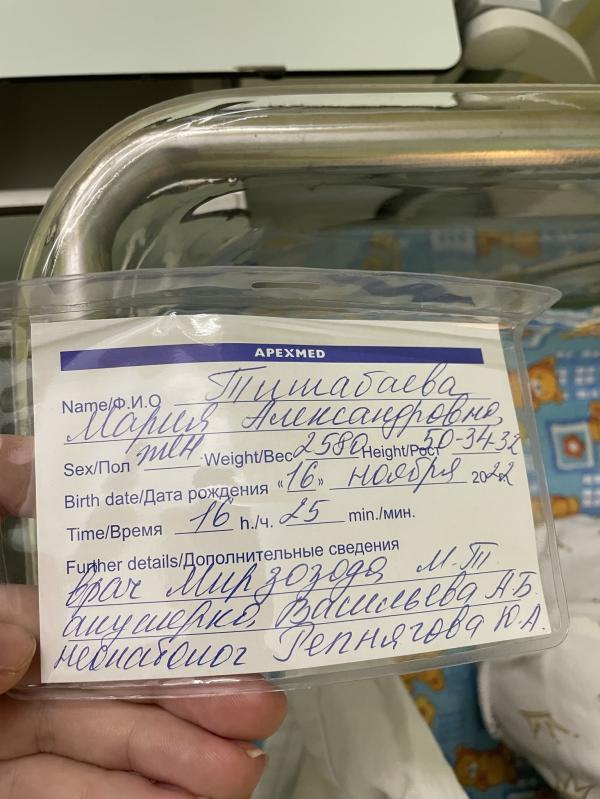 APEXMED
Name/Ф.И.О Тишабаева
Мария Александровна
Sex/Пол жен Weight/Вес 2580 Height/Рост 50-34-32
Birth date/Дата рождения «16» ноября 2022
Time/Время 16 h./ч. 25 min./мин.
Further details/Дополнительные сведения
врач Мирзозода М-Т.
акушерка Васильева А.Б.
неонатолог Репнягова Ю.А.